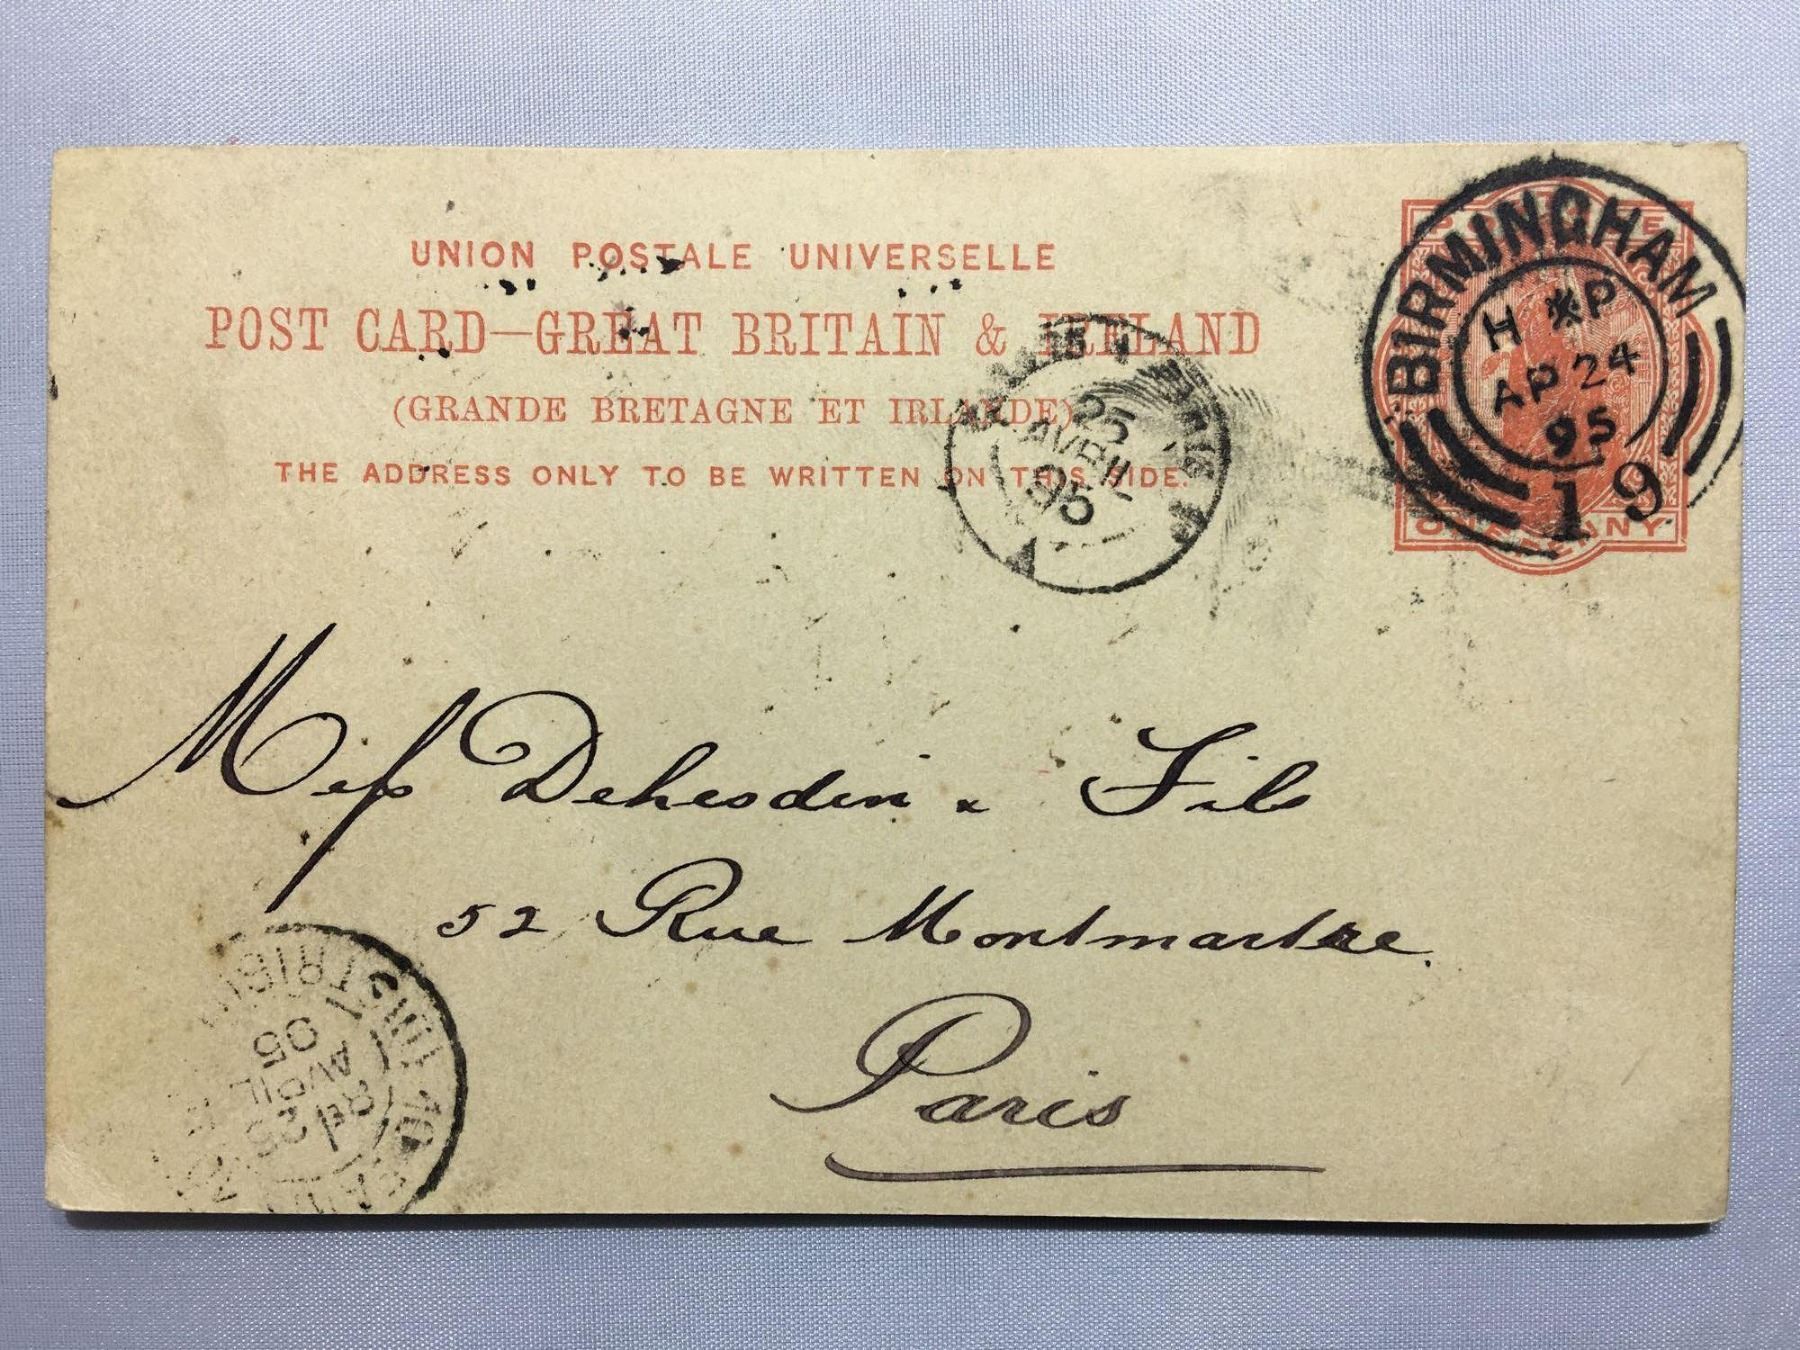 UNION POSTALE UNIVERSELLE
POST CARD—GREAT BRITAIN & IRELAND
(GRANDE BRETAGNE ET IRLANDE)
THE ADDRESS ONLY TO BE WRITTEN ON THIS SIDE.
BIRMINGHAM
H P
AP 24
95
19
ONE PENNY
25
AVRIL
95
Mess Dehesdin & Fils
52 Rue Montmartre.
Paris
DISTRIBUTION
25
AVRIL
95